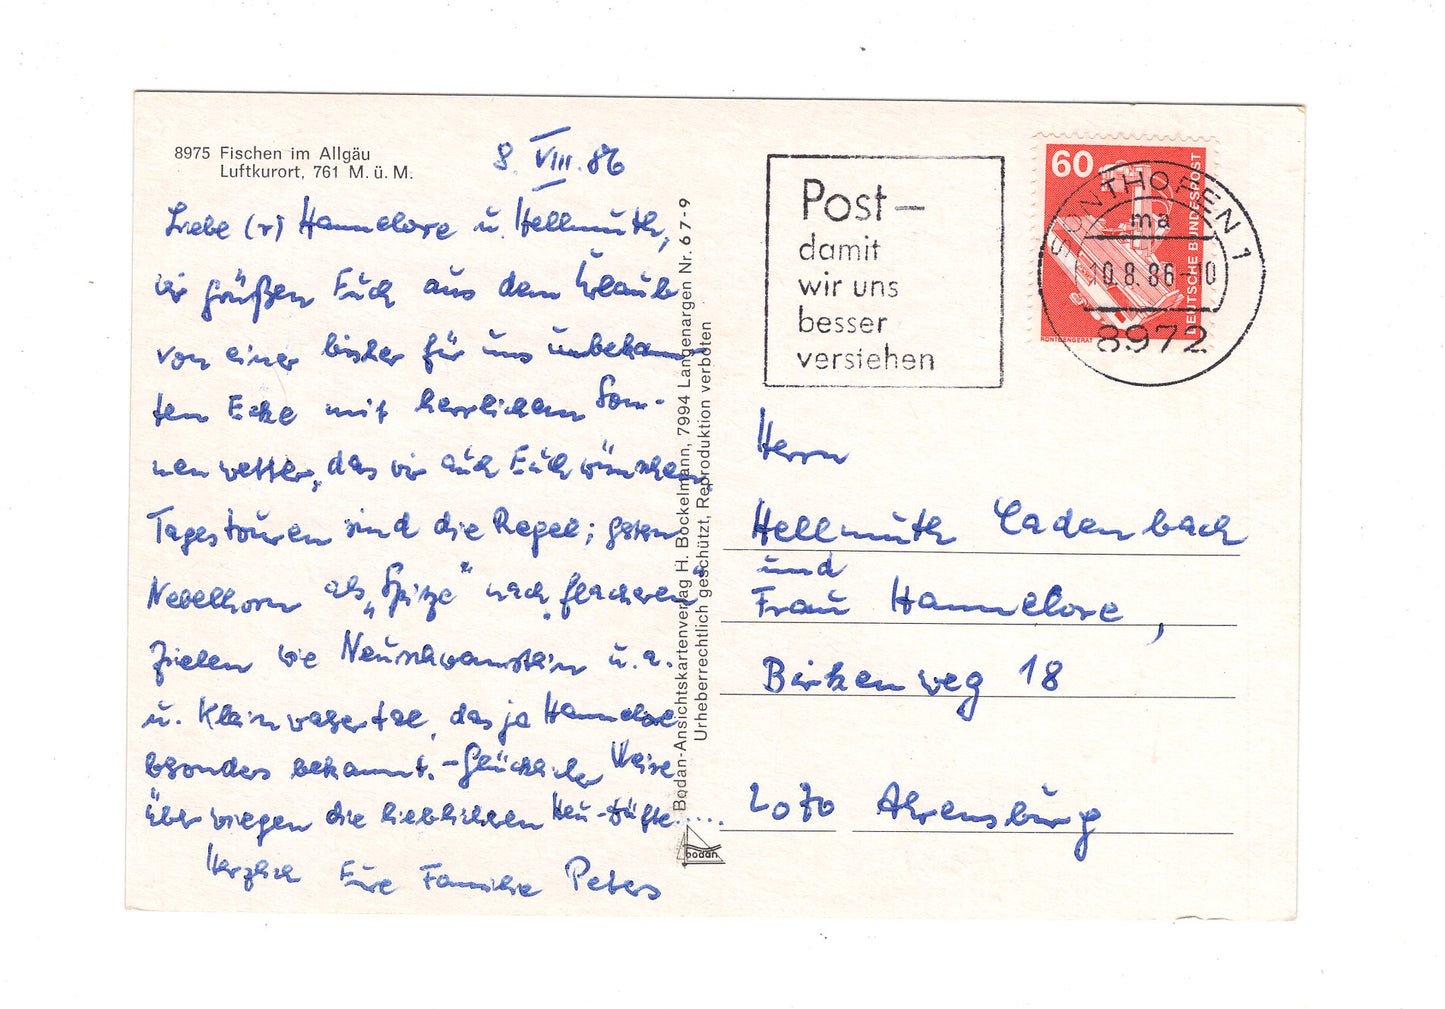 8975 Fischen im Allgäu
Luftkurort, 761 M. ü. M.
8. VIII. 86
Liebe (r) Hannelore u. Hellmuth,
wir grüßen Euch aus dem Urlaub
von einer bisher für uns unbekann
ten Ecke mit herrlichem Son-
nenwetter, das wir auch Euch wünschen.
Tagestouren sind die Regel; gestern
Nebelhorn als „Spitze" nach „flacheren"
Zielen wie Neuschwanstein u. a.
u. Kleinwalsertal, das ja Hannelore
besonders bekannt. - Glücklicher Weise
überwiegen die lieblichen Heu-Düfte.....
Herzlich Eure Familie Peters
Bodan-Ansichtskartenverlag H. Bockelmann, 7994 Langenargen Nr. 6 7-9
Urheberrechtlich geschützt, Reproduktion verboten
bodan
Post-
damit
wir uns
besser
verstehen
60
DEUTSCHE BUNDESPOST
RÖNTGENGERÄT
SONTHOFEN 1
ma
10.8.86-10
8972
Herrn
Hellmuth Cadenbach
und
Frau Hannelore,
Birkenweg 18
2070 Ahrensburg